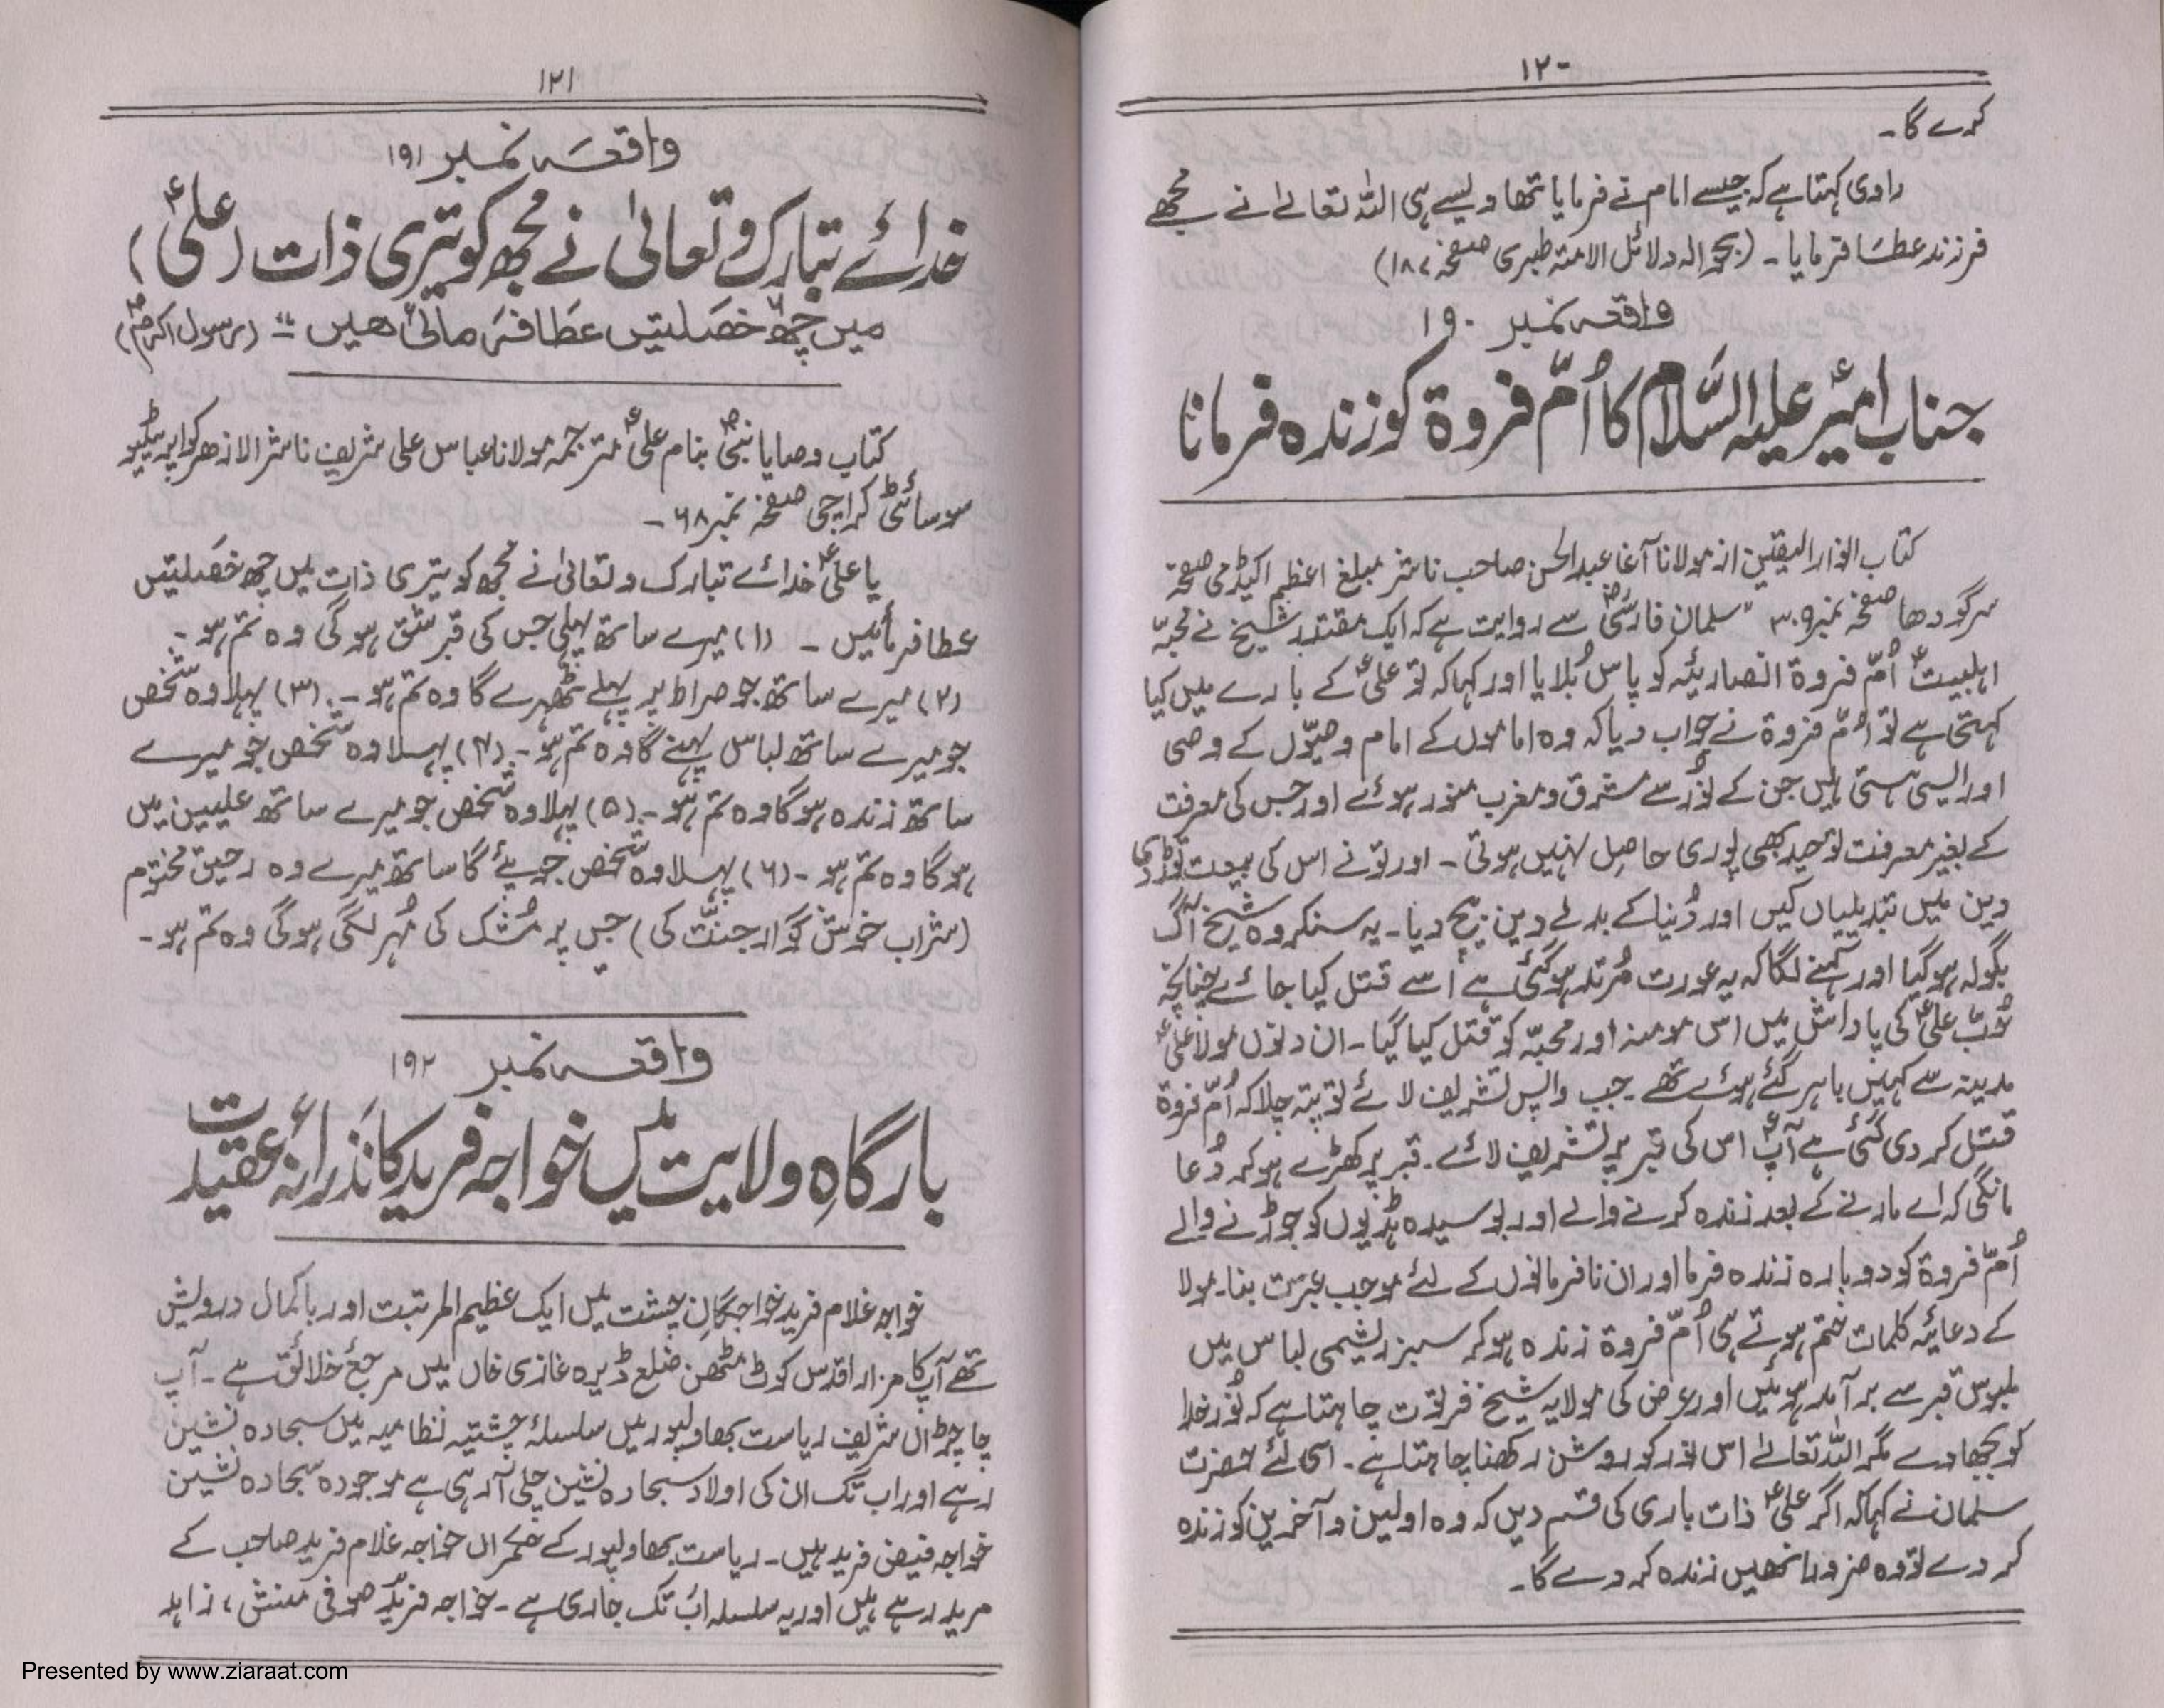 ۱۲۰
کرے گا۔
راوی کہتا ہے کہ جیسے امام نے فرمایا تھا ویسے ہی اللہ تعالےٰ نے مجھے
فرزند عطا فرمایا۔ (بحوالہ دلائل الامتہ طبری صفحہ ۱۸۷)
واقعہ نمبر ۱۹۰
جناب امیرؑ علیہ السّلام کا اُمّ فروة کو زندہ فرمانا
کتاب انوار الیقین از مولانا آغا عبدالحسن صاحب ناشر مبلغ اعظم اکیڈمی صفحہ
سرگودھا صفحہ نمبر ۳۰۹ "سلمان فارسیؓ سے روایت ہے کہ ایک مقتدر شیخ نے محبّہ
اہلبیتؑ اُمّ فروة انصاریئہ کو پاس بُلایا اور کہا کہ تو علیؑ کے بارے میں کیا
کہتی ہے تو اُمّ فروة نے جواب دیا کہ وہ اماموں کے امام وصیّوں کے وصی
اور ایسی ہستی ہیں جن کے نُور سے مشرق و مغرب منور ہوئے اور جس کی معرفت
کے بغیر معرفت توحید بھی پوری حاصِل نہیں ہوتی۔ اور تو نے اس کی بیعت توڑ دی
دین میں تبدیلیاں کیں اور دُنیا کے بدلے دین بیچ دیا۔ یہ سنکر وہ شیخ آگ
بگولہ ہوگیا اور کہنے لگا کہ یہ عورت مُرتد ہوگئی ہے اسے قتل کیا جائے چنانچہ
حُبّ علیؑ کی پاداش میں اس مومنہ اور محبّہ کو قتل کیا گیا۔ ان دنوں مولا علیؑ
مدینہ سے کہیں باہر گئے ہوئے تھے۔ جب واپس تشریف لائے تو پتہ چلا کہ اُمّ فروة
قتل کر دی گئی ہے آپؑ اس کی قبر پر تشریف لائے۔ قبر پر کھڑے ہو کر دُعا
مانگی کہ اے مارنے کے بعد زندہ کرنے والے اور بوسیدہ ہڈیوں کو جوڑنے والے
اُمّ فروة کو دوبارہ زندہ فرما اور ان نافرمانوں کے لئے موجب عبرت بنا۔ مولا
کے دعائیہ کلمات ختم ہوتے ہی اُمّ فروة زندہ ہو کر سبز ریشمی لباس میں
ملبوس قبر سے برآمد ہوئیں اور عرض کی مولا یہ شیخ فرتوت چاہتا ہے کہ نُور خدا
کو بجھا دے مگر اللہ تعالےٰ اس نور کو روشن رکھنا چاہتا ہے۔ اسی لئے حضرت
سلمان نے کہا کہ اگر علیؑ ذات باری کی قسم دیں کہ وہ اولین و آخرین کو زندہ
کر دے تو وہ ضرور انھیں زندہ کر دے گا۔
۱۲۱
واقعہ نمبر ۱۹۱
خدائے تبارک و تعالیٰ نے مجھ کو تیری ذات (علیؑ)
میں چھ خصلتیں عطا فرمائی ہیں" (رسول اکرمؐ)
کتاب وصایا نبیؐ بنام علیؑ مترجمہ مولانا عباس علی شریف ناشر الازھر کواپریٹیو
سوسائٹی کراچی صفحہ نمبر ۶۸۔
یا علیؑ خدائے تبارک و تعالیٰ نے مجھ کو تیری ذات میں چھ خصلتیں
عطا فرمائیں۔ (۱) میرے ساتھ پہلی جس کی قبر شق ہو گی وہ تم ہو۔
(۲) میرے ساتھ جو صراط پر پہلے ٹھہرے گا وہ تم ہو۔ (۳) پہلا وہ شخص
جو میرے ساتھ لباس پہنے گا وہ تم ہو۔ (۴) پہلا وہ شخص جو میرے
ساتھ زندہ ہو گا وہ تم ہو۔ (۵) پہلا وہ شخص جو میرے ساتھ علیین میں
ہو گا وہ تم ہو۔ (۶) پہلا وہ شخص جو پیئے گا ساتھ میرے وہ رحیق مختوم
(شراب خوش گوار جنّت کی) جس پر مُشک کی مُہر لگی ہوگی وہ تم ہو۔
واقعہ نمبر ۱۹۲
بارگاہِ ولایت میں خواجہ فرید کا نذرانہ عقیدت
خواجہ غلام فرید خواجگانِ چشت میں ایک عظیم المرتبت اور باکمال درویش
تھے آپ کا مزار اقدس کوٹ مٹھن ضلع ڈیرہ غازی خاں میں مرجعٔ خلائق ہے۔ آپ
چاچڑاں شریف ریاست بھاولپور میں سلسلۂ چشتیہ نظامیہ میں سجادہ نشین
رہے اور اب تک ان کی اولاد سجادہ نشین چلی آرہی ہے موجودہ سجادہ نشین
خواجہ فیض فرید ہیں۔ ریاست بھاولپور کے حکمراں خواجہ غلام فرید صاحب کے
مرید رہے ہیں اور یہ سلسلہ اب تک جاری ہے۔ خواجہ فرید صوفی منش، زاہد
Presented by www.ziaraat.com